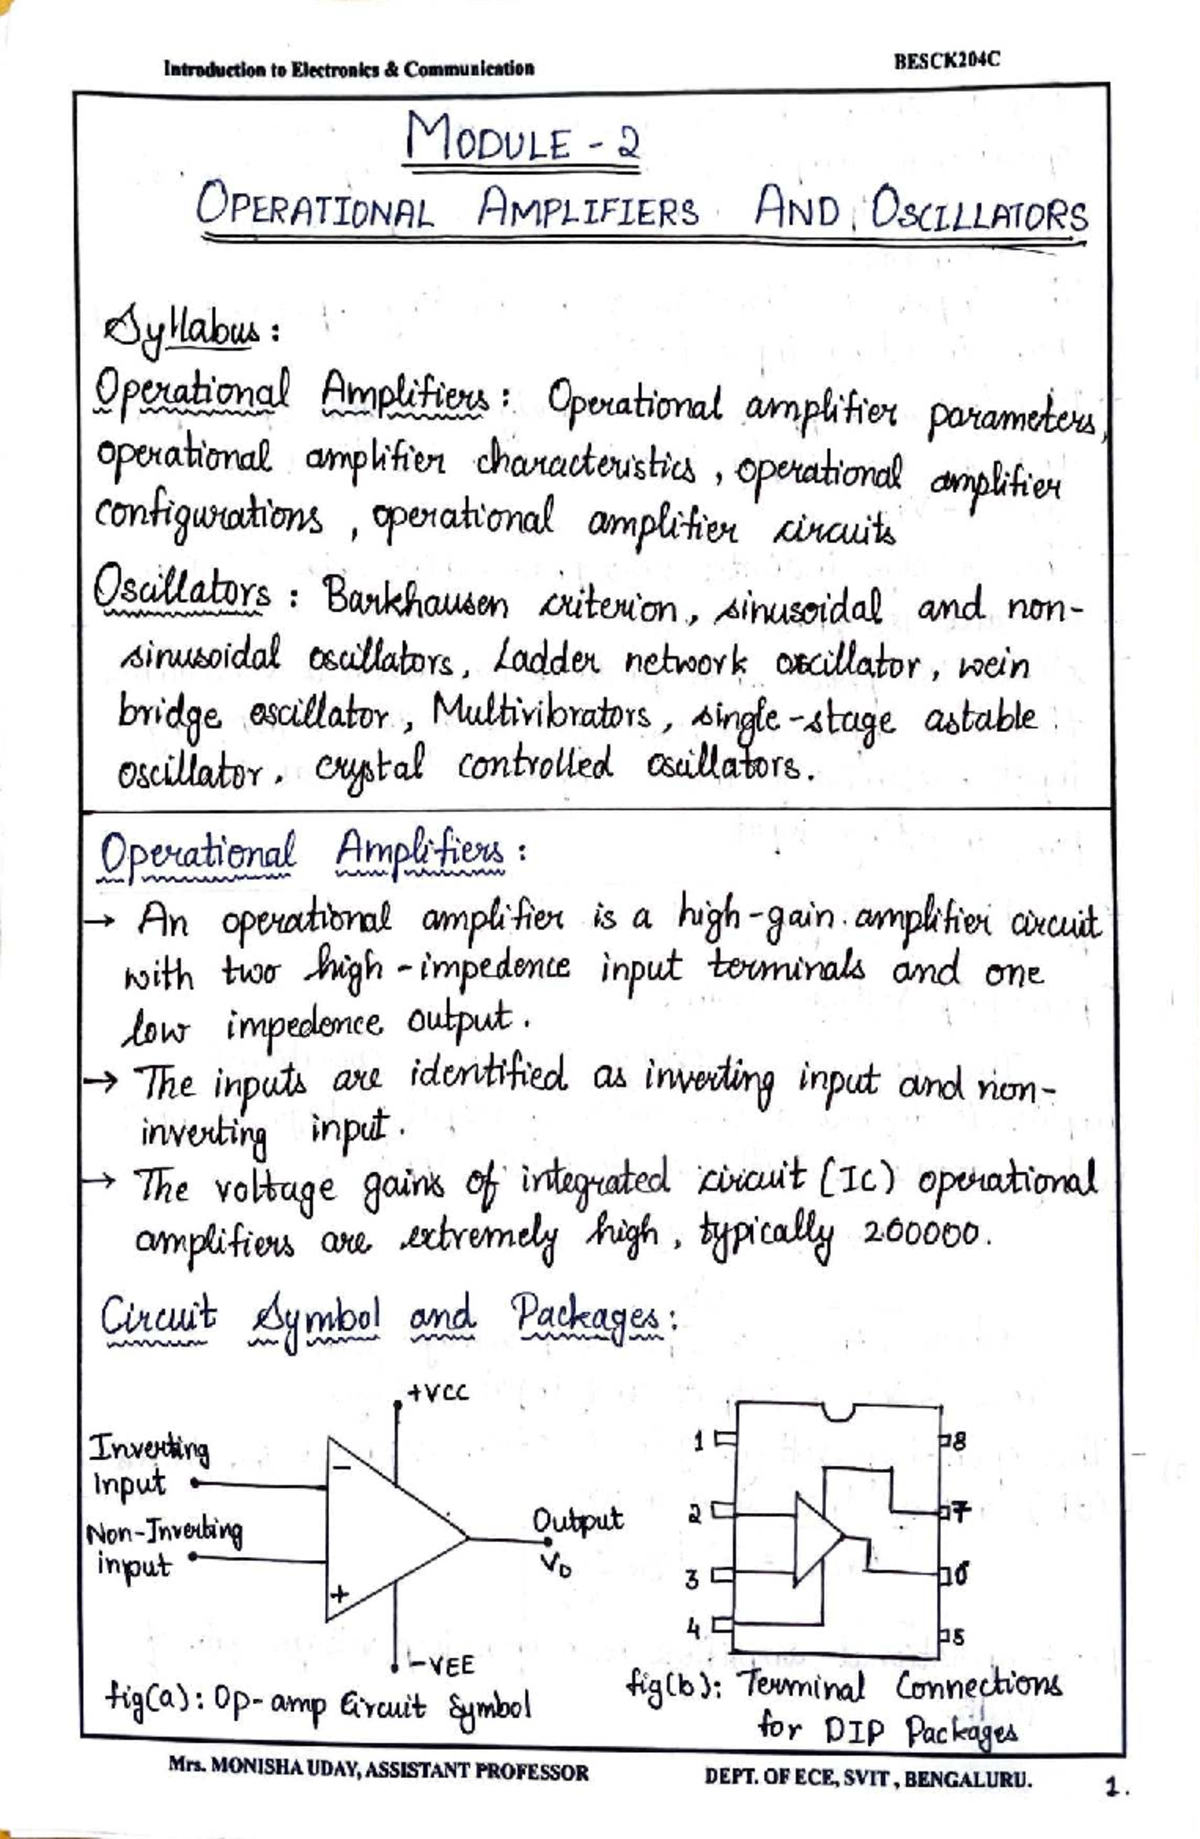 Introduction to Electronics & Communication BESCK204C
MODULE - 2
OPERATIONAL AMPLIFIERS AND OSCILLATORS
Syllabus :
Operational Amplifiers : Operational amplifier parameters,
operational amplifier characteristics, operational amplifier
configurations, operational amplifier circuits
Oscillators : Barkhausen criterion, sinusoidal and non-
sinusoidal oscillators, Ladder network oscillator, wein
bridge oscillator, Multivibrators, single-stage astable
oscillator, crystal controlled oscillators.
Operational Amplifiers :
→ An operational amplifier is a high-gain amplifier circuit
with two high-impedence input terminals and one
low impedence output.
→ The inputs are identified as inverting input and non-
inverting input.
→ The voltage gains of integrated circuit (IC) operational
amplifiers are extremely high, typically 200000.
Circuit Symbol and Packages :
+VCC
Inverting
Input
−
Non-Inverting
input
+
Output
VO
-VEE
fig(a) : Op-amp Circuit Symbol
1
2
3
4
8
7
6
5
fig(b): Terminal Connections
for DIP Packages
Mrs. MONISHA UDAY, ASSISTANT PROFESSOR DEPT. OF ECE, SVIT , BENGALURU.
1.